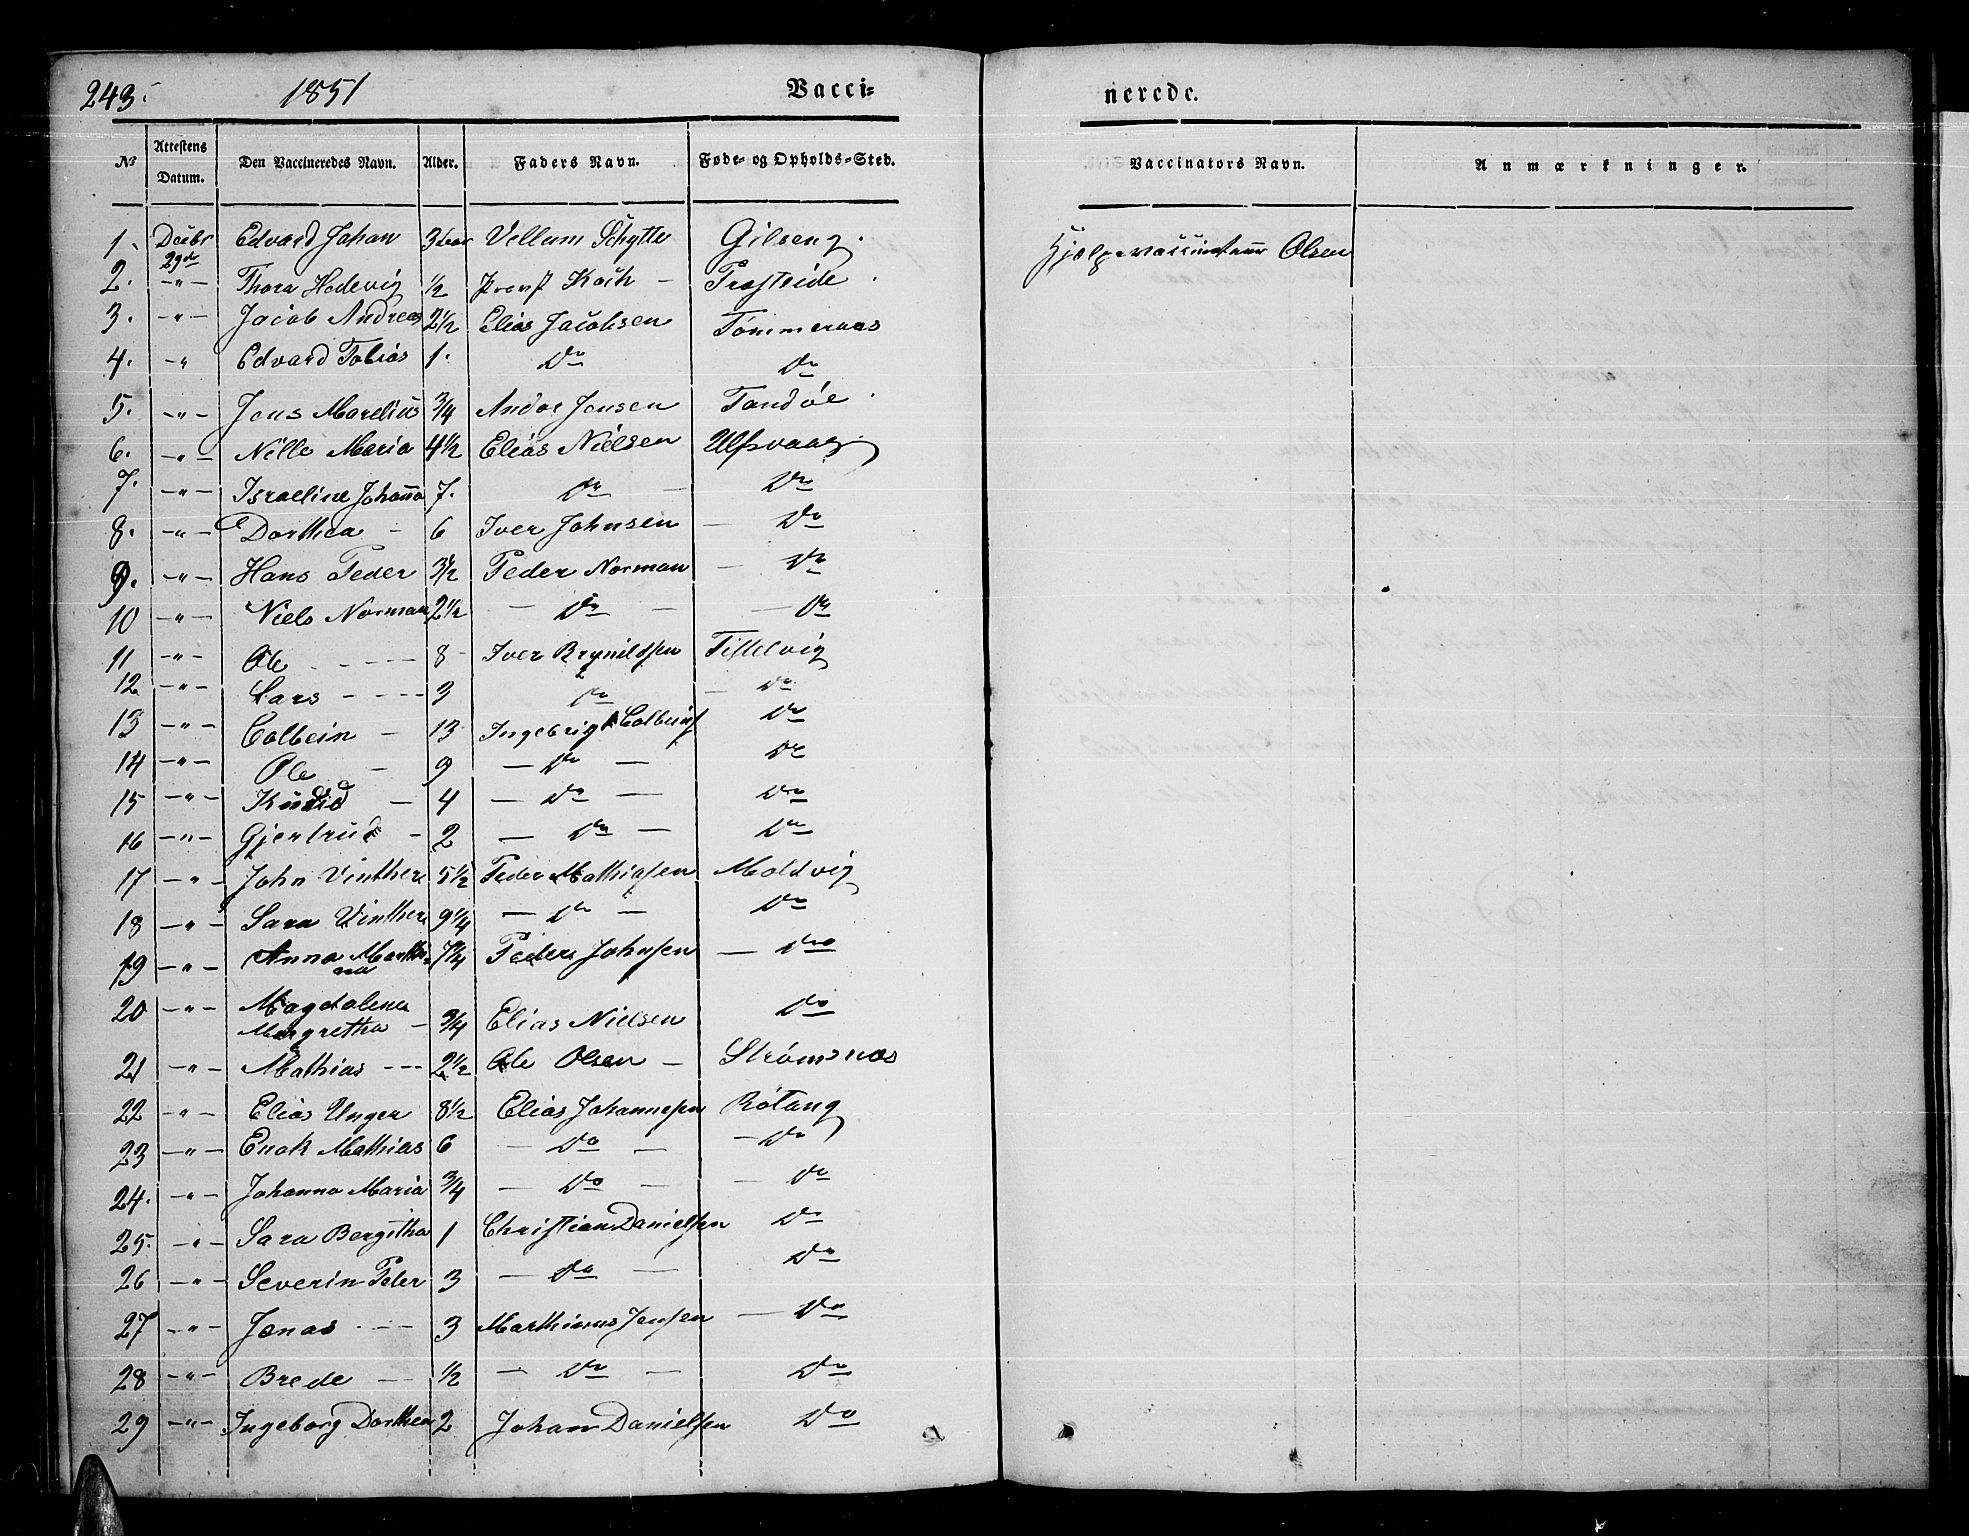 243. 1851 Vacci-
nerede.
No Attestens Datum. Den Vaccineredes Navn. Alder. Faders Navn. Føde- og Opholds-Sted. Vaccinators Navn. Anmærkninger.
1. Decbr 29de Edvard Johan 3 Vellum Schytte Gilseng. Hjælpevaccinateur Olsen
2. -"- Thora Hedevig 1/2 Provst Koch - Prosteide.
3. -"- Jacob Andreas 2 1/2 Elias Jacobsen Tømmeraas
4. -" Edvard Tobias 1. Do Do
5. -"- Jens Marelius 3/4 Andor Jensen Tandøe.
6. -"- Nille Maria 4 1/2 Elias Nielsen Ulfsvaag
7. -"- Israeline Johanna 7. Do - Do
8. -"- Dorthea - 6 Iver Johnsen - Do
9. -"- Hans Peder 3 1/2 Peder Norman - Do
10 -"- Niels Norman 2 1/2 - Do - - Do
11 -"- Ole - - - - 8 - Iver Brynildsen Tistelvig
12 -"- Lars - - - - 3 Do - Do
13 -"- Colbein - 13 Ingebrigt Colbeins Do
14 -"- Ole - 9 - Do - Do
15 -"- - 4 - Do - Do
16 -"- Gjertrud - 2 - Do - Do
17 -"- John Vinther 5 1/2 Peder Mathiasen Moldvig
18 -"- Sara Vinther 9 1/4 - Do - Do
19 -"- Anna Marthina 7 3/4 Peder Johnsen - Do
20 -"- Magdalena
Margretha - 3/4 Elias Nielsen Do
21 -"- Mathias - - - 2 1/2 Ole Olsen - Strømsnæs
22 -"- Elias Unger 8 1/2 Elias Johannesen Røtang
23 -"- Enok Mathias 6 - Do - - Do
24. -"- Johanna Maria 3/4 - Do - - Do
25. -"- Sara Bergitha 1 Christian Danielsen Do
26 -"- Severin Peder 3 - Do - Do
27 -"- Jonas - - - 3 Marthinus Jensen - Do
28 -"- Brede - 1/2 - Do - Do
29 -"- Ingeborg Dorthea 2 Johan Danielsen Do